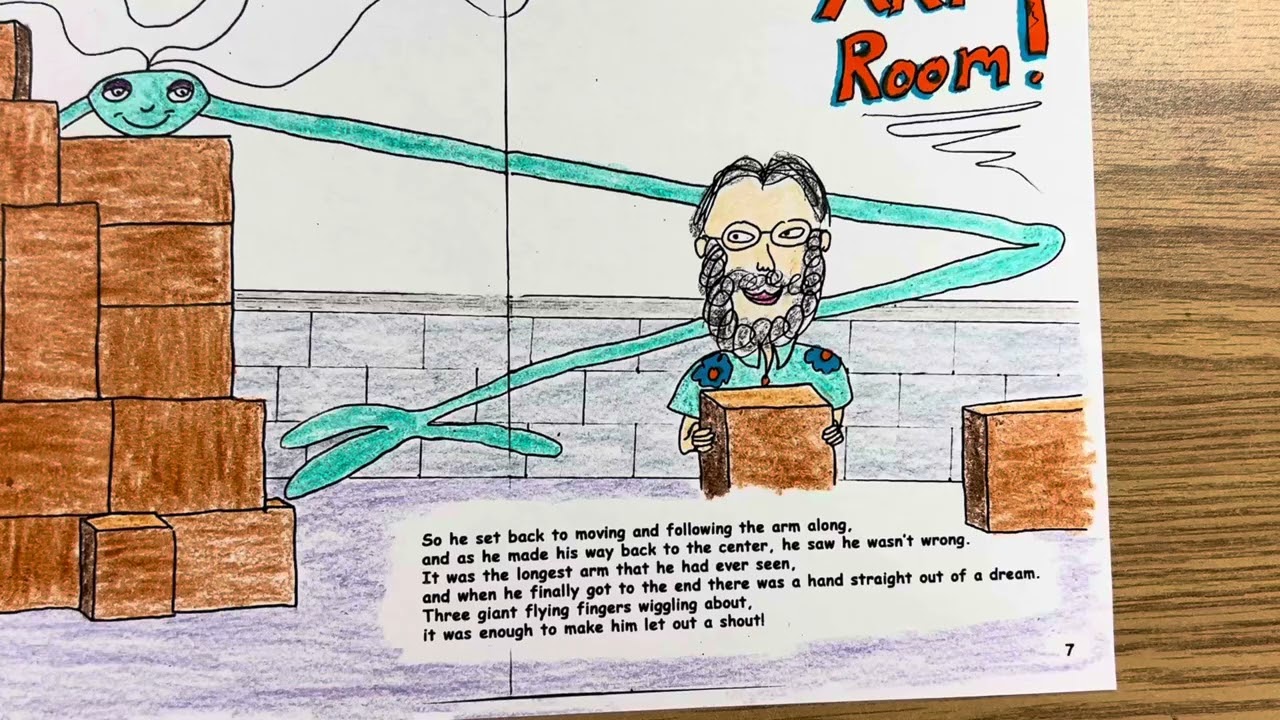 Room!
So he set back to moving and following the arm along,
and as he made his way back to the center, he saw he wasn't wrong.
It was the longest arm that he had ever seen,
and when he finally got to the end there was a hand straight out of a dream.
Three giant flying fingers wiggling about,
it was enough to make him let out a shout!
7